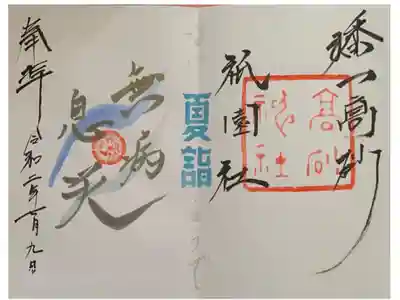 高砂
高砂
神社
祇園社
夏詣
無病
息災
奉拝
令和二年 月九日